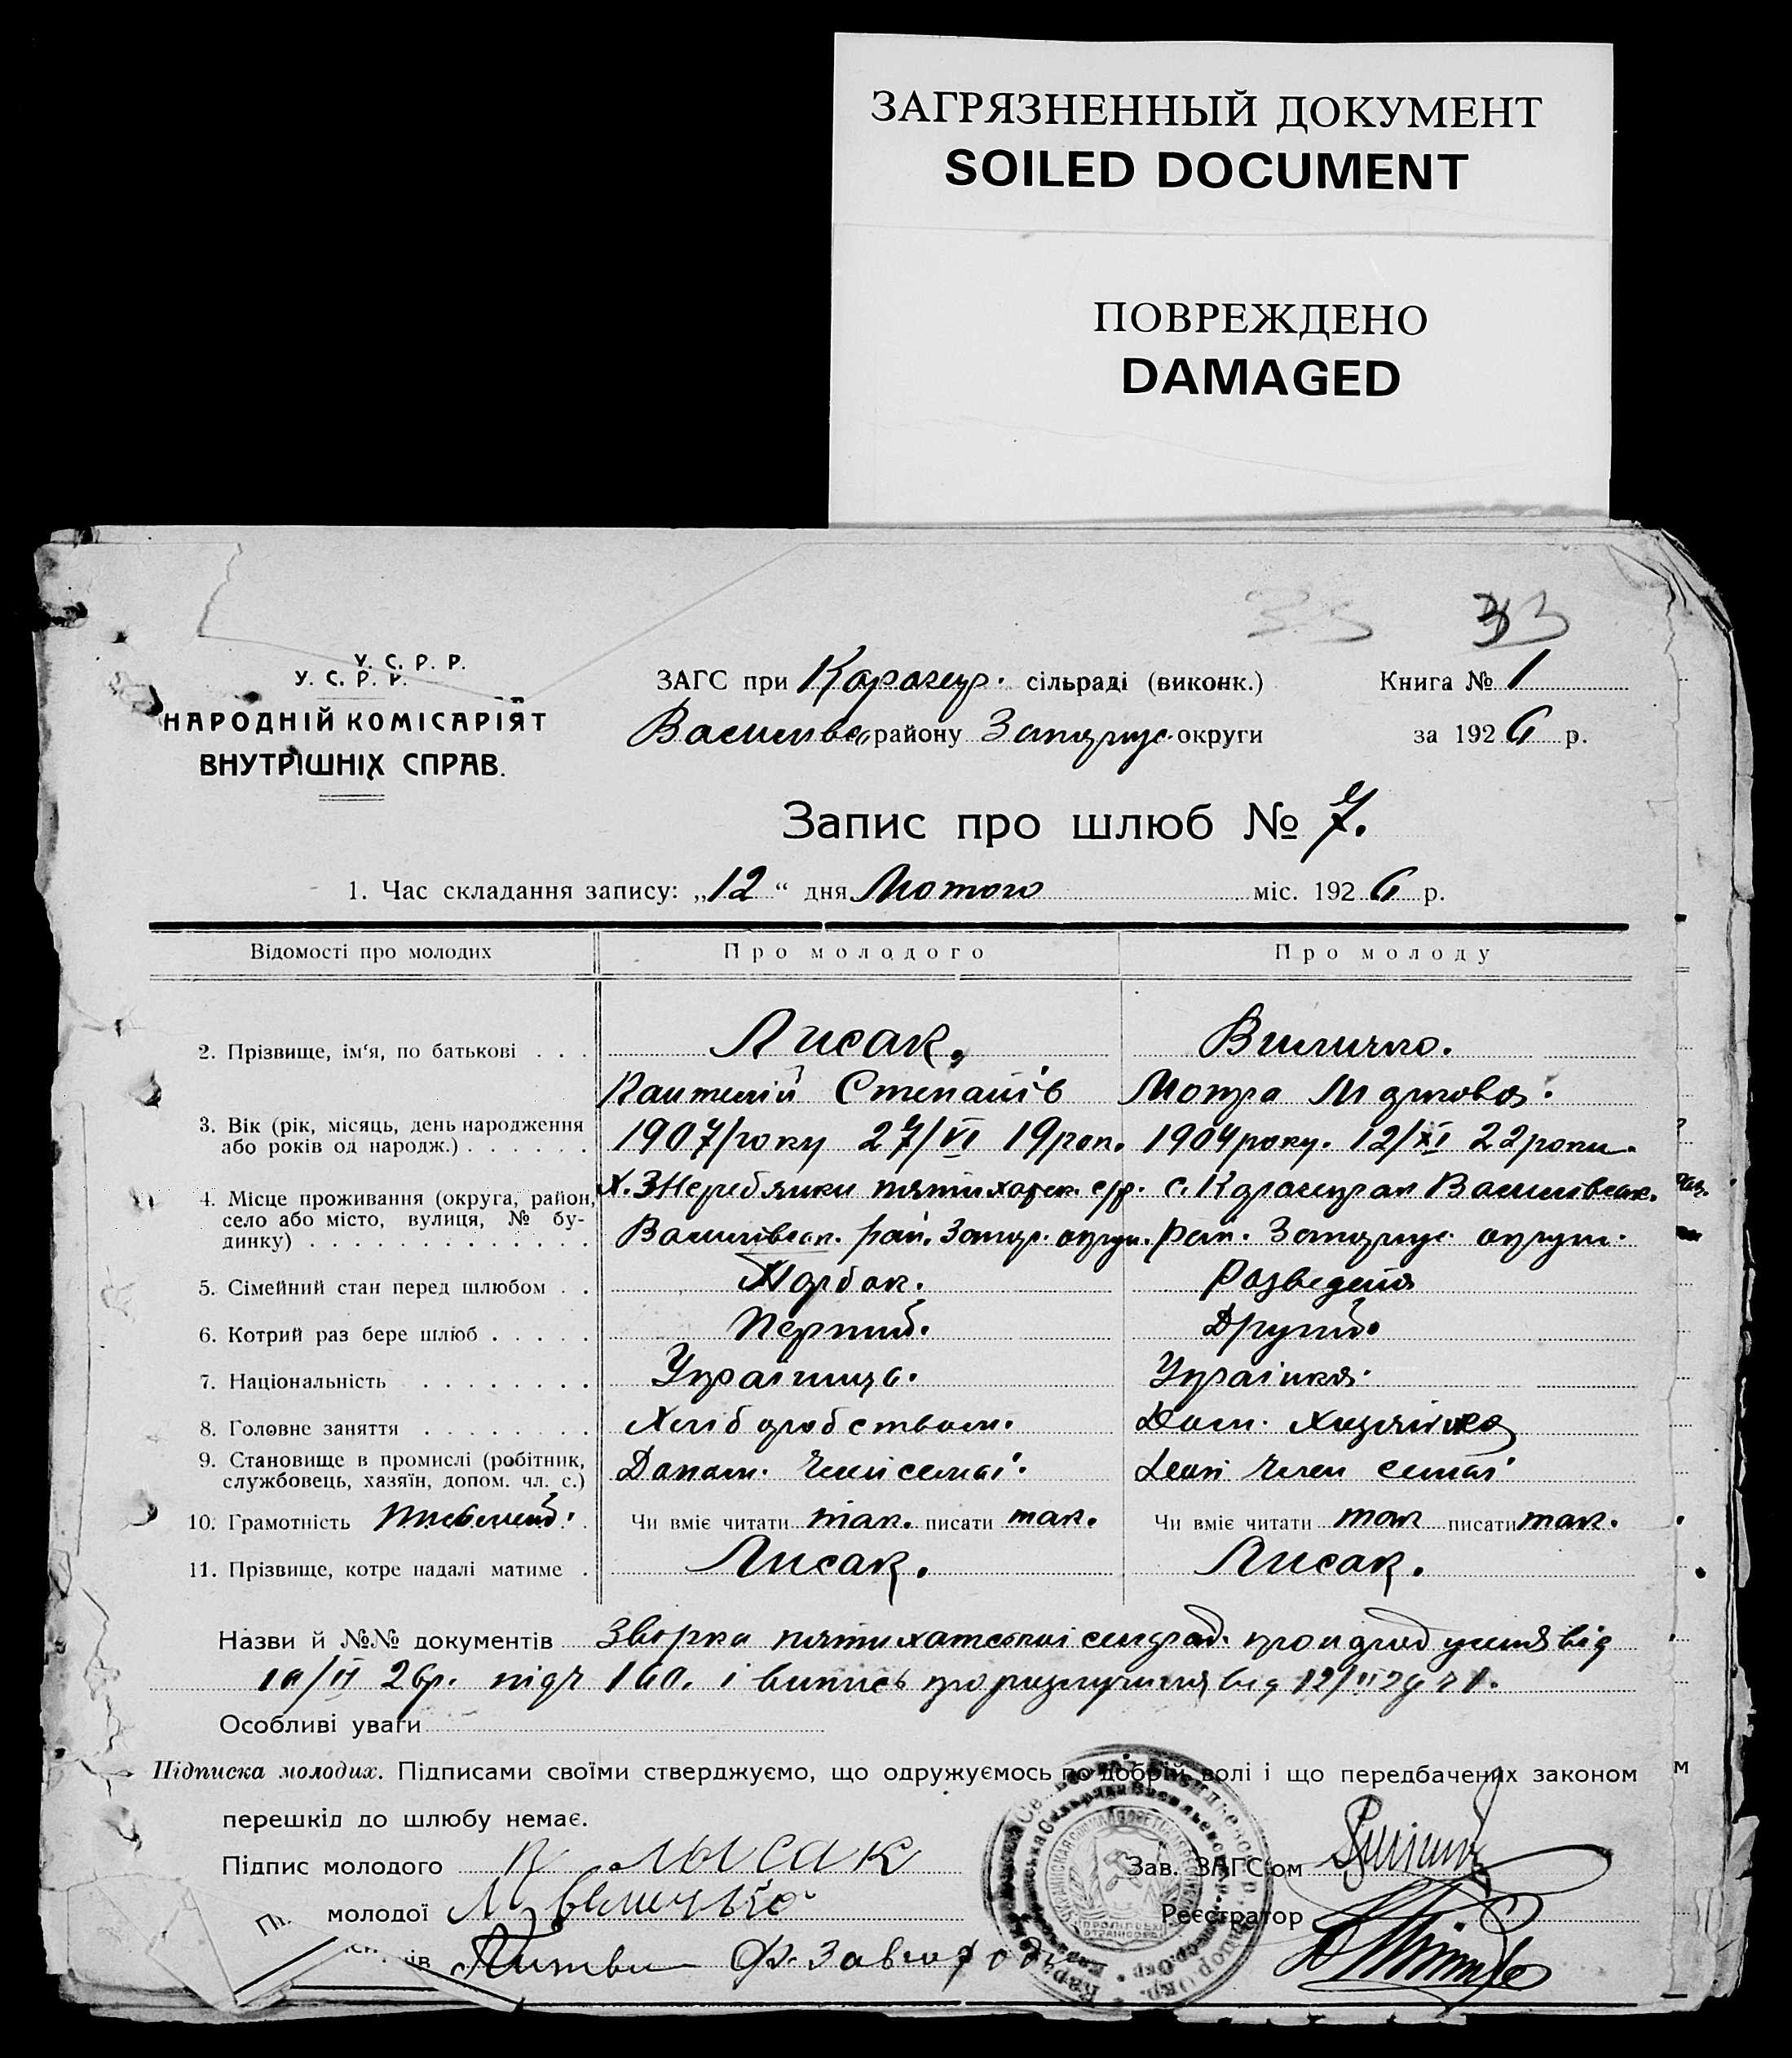 ЗАГРЯЗНЕННЫЙ ДОКУМЕНТ
SOILED DOCUMENT
ПОВРЕЖДЕНО
DAMAGED
33
У. С. Р. Р.
У. С. Р. Р.
НАРОДНІЙ КОМІСАРІЯТ
ВНУТРІШНІХ СПРАВ.
ЗАГС при Карачкр. сільраді (виконк.)
Василівс. району Запоріж. округи
Книга № 1
за 1926 р.
Запис про шлюб № 7.
1. Час складання запису: „12“ дня Лютого міс. 1926 р.
Відомості про молодих
Про молодого
Про молоду
2. Прізвище, ім‘я, по батькові . . . Лисак. Величко.
Пантелій Степанів Мотра Маркова.
3. Вік (рік, місяць, день народження або років од народж.) . . . . . . 1907/року 27/VI 19 рок. 1904 року. 12/XI 22 роки.
4. Місце проживання (округа, район, село або місто, вулиця, № будинку) . . . х. Жеребянки пятихатск. с/р. с. Карачкрак Василівськ.
Василівськ. рай. Запор. округи. рай. Запоріж. округи.
5. Сімейний стан перед шлюбом . . Парбок. Розведена
6. Котрий раз бере шлюб . . . . . Перший. Другий.
7. Національність . . . . . . . . Українець. Українка.
8. Головне заняття . . . . . . . Хліборобством. Дом. хазяйка
9. Становище в промислі (робітник, службовець, хазяїн, допом. чл. с.) Допом. член семьї. член семьї
10. Грамотність Письмений. Чи вміє читати так. писати так. Чи вміє читати так писати так.
11. Прізвище, котре надалі матиме . Лисак. Лисак.
Назви й №№ документів пятихатської сільрад. про від
10/II 26 р. під ч і випись про розлучення від 12/II ч 1.
Особливі уваги
Підписка молодих. Підписами своїми стверджуємо, що одружуємось по добрій волі і що передбачених законом
перешкід до шлюбу немає.
Підпис молодого П Лысак Зав. ЗАГС‘ом
молодої М величко Реєстратор
ів Литви Ф. Завгород